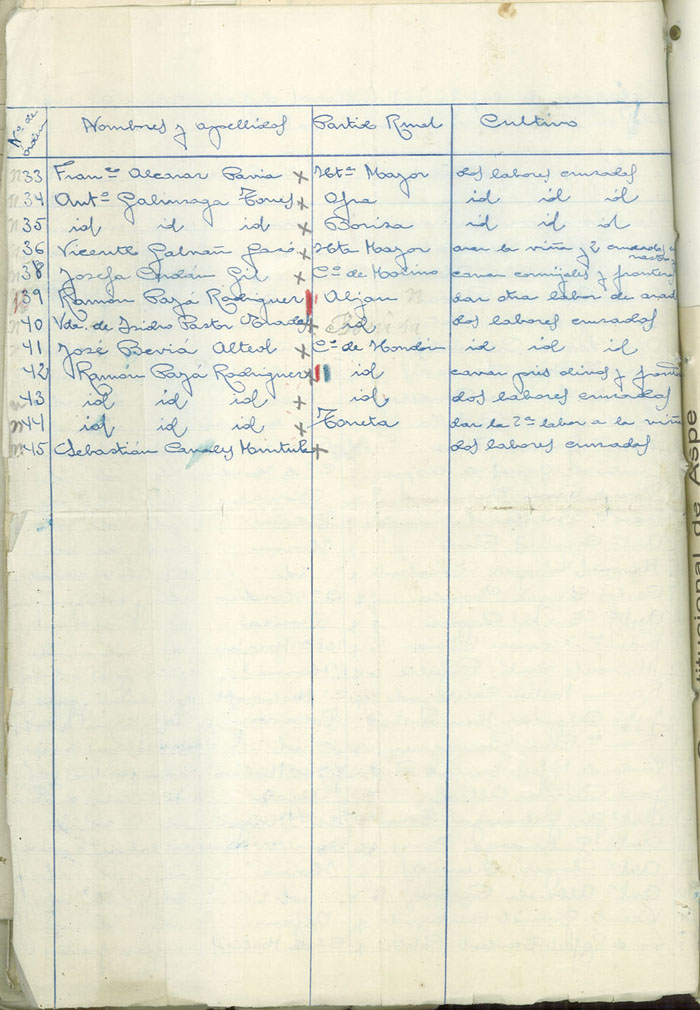 Nº de orden Nombres y apellidos Partido Rural Cultivo
33 Franco Alcaraz Pavia x Hta Mayor dos labores cruzados
34 Antº Galinzaga Torres x Ofra id id id
35 id id id x Boriza id id id
36 Vicente Galvañ x Hta Mayor arar la viña y 2 cruzados
38 Josefa Cerdán Gil x Cº de cavar cornijales y
39 Ramón Pazá Rodriguez Aljau dar otra labor de
40 Vda. de Isidro Pastor x id dos labores cruzados
41 José Beviá Alted x Cº de Hondón id id id
42 Ramón Pazá Rodriguez x id cavar pies olivos y
43 id id id + id dos labores cruzados
44 id id id + Toreta dar la 2ª labor a la viña
45 Sebastián + dos labores cruzados
titucional de Aspe